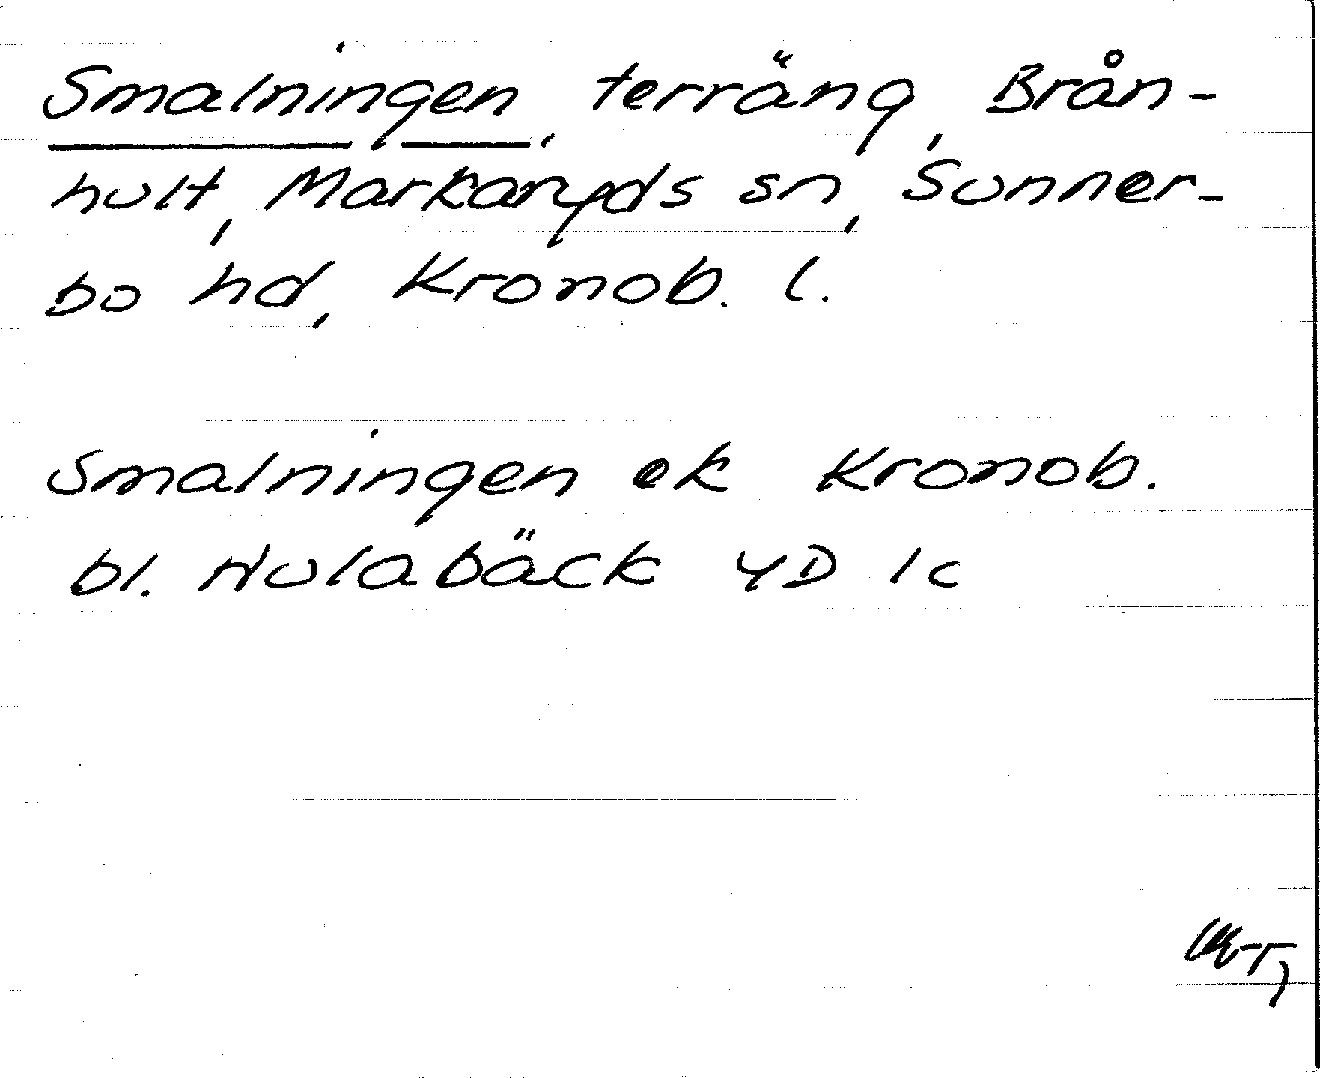 Smalningen, terräng, Brån-
hult, Markaryds sn, Sunner-
bo hd, Kronob. l.
Smalningen ek Kronob.
bl. Hulabäck 4D 1c